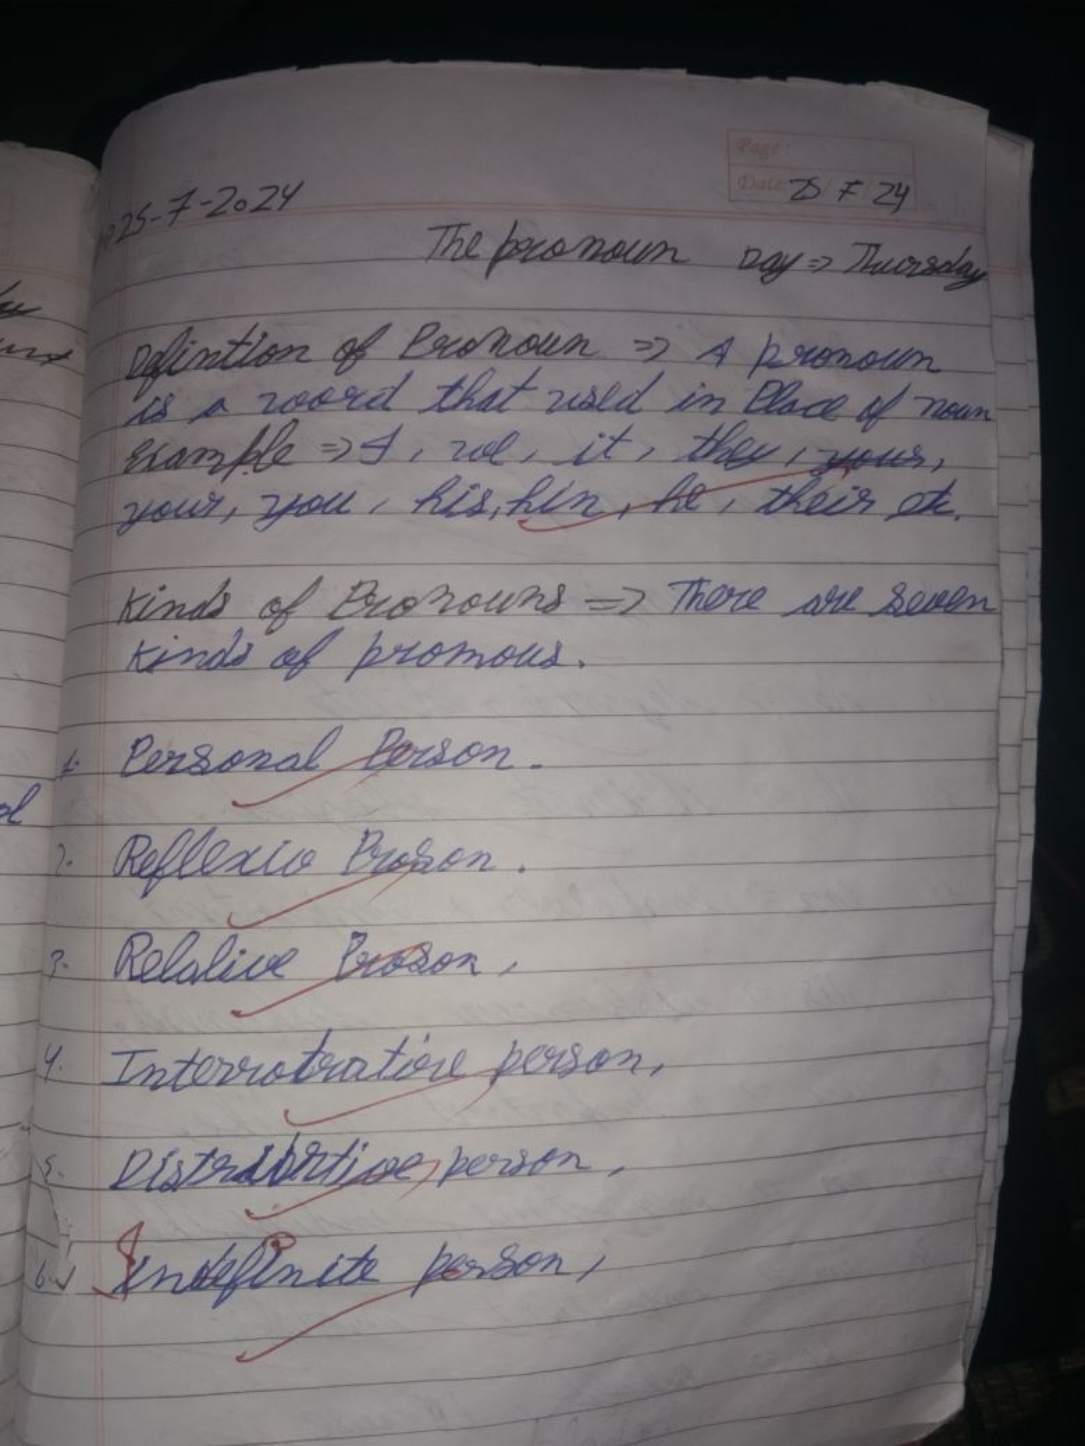 Page:
Date: 25/7/24
25-7-2024
The pronoun Day => Thursday
Defintion of Pronoun => A pronoun
is a woord that used in Place of noun
Example => I, we, it, they, yours,
your, you, his, hin, he, their etc.
Kinds of Pronouns => There are seven
kinds of promous.
1. Personal Person.
2. Reflexio Proson.
3. Relalive Proson,
4. Interrotrative person,
5. Distribrtive, person,
6. Indefinite person,